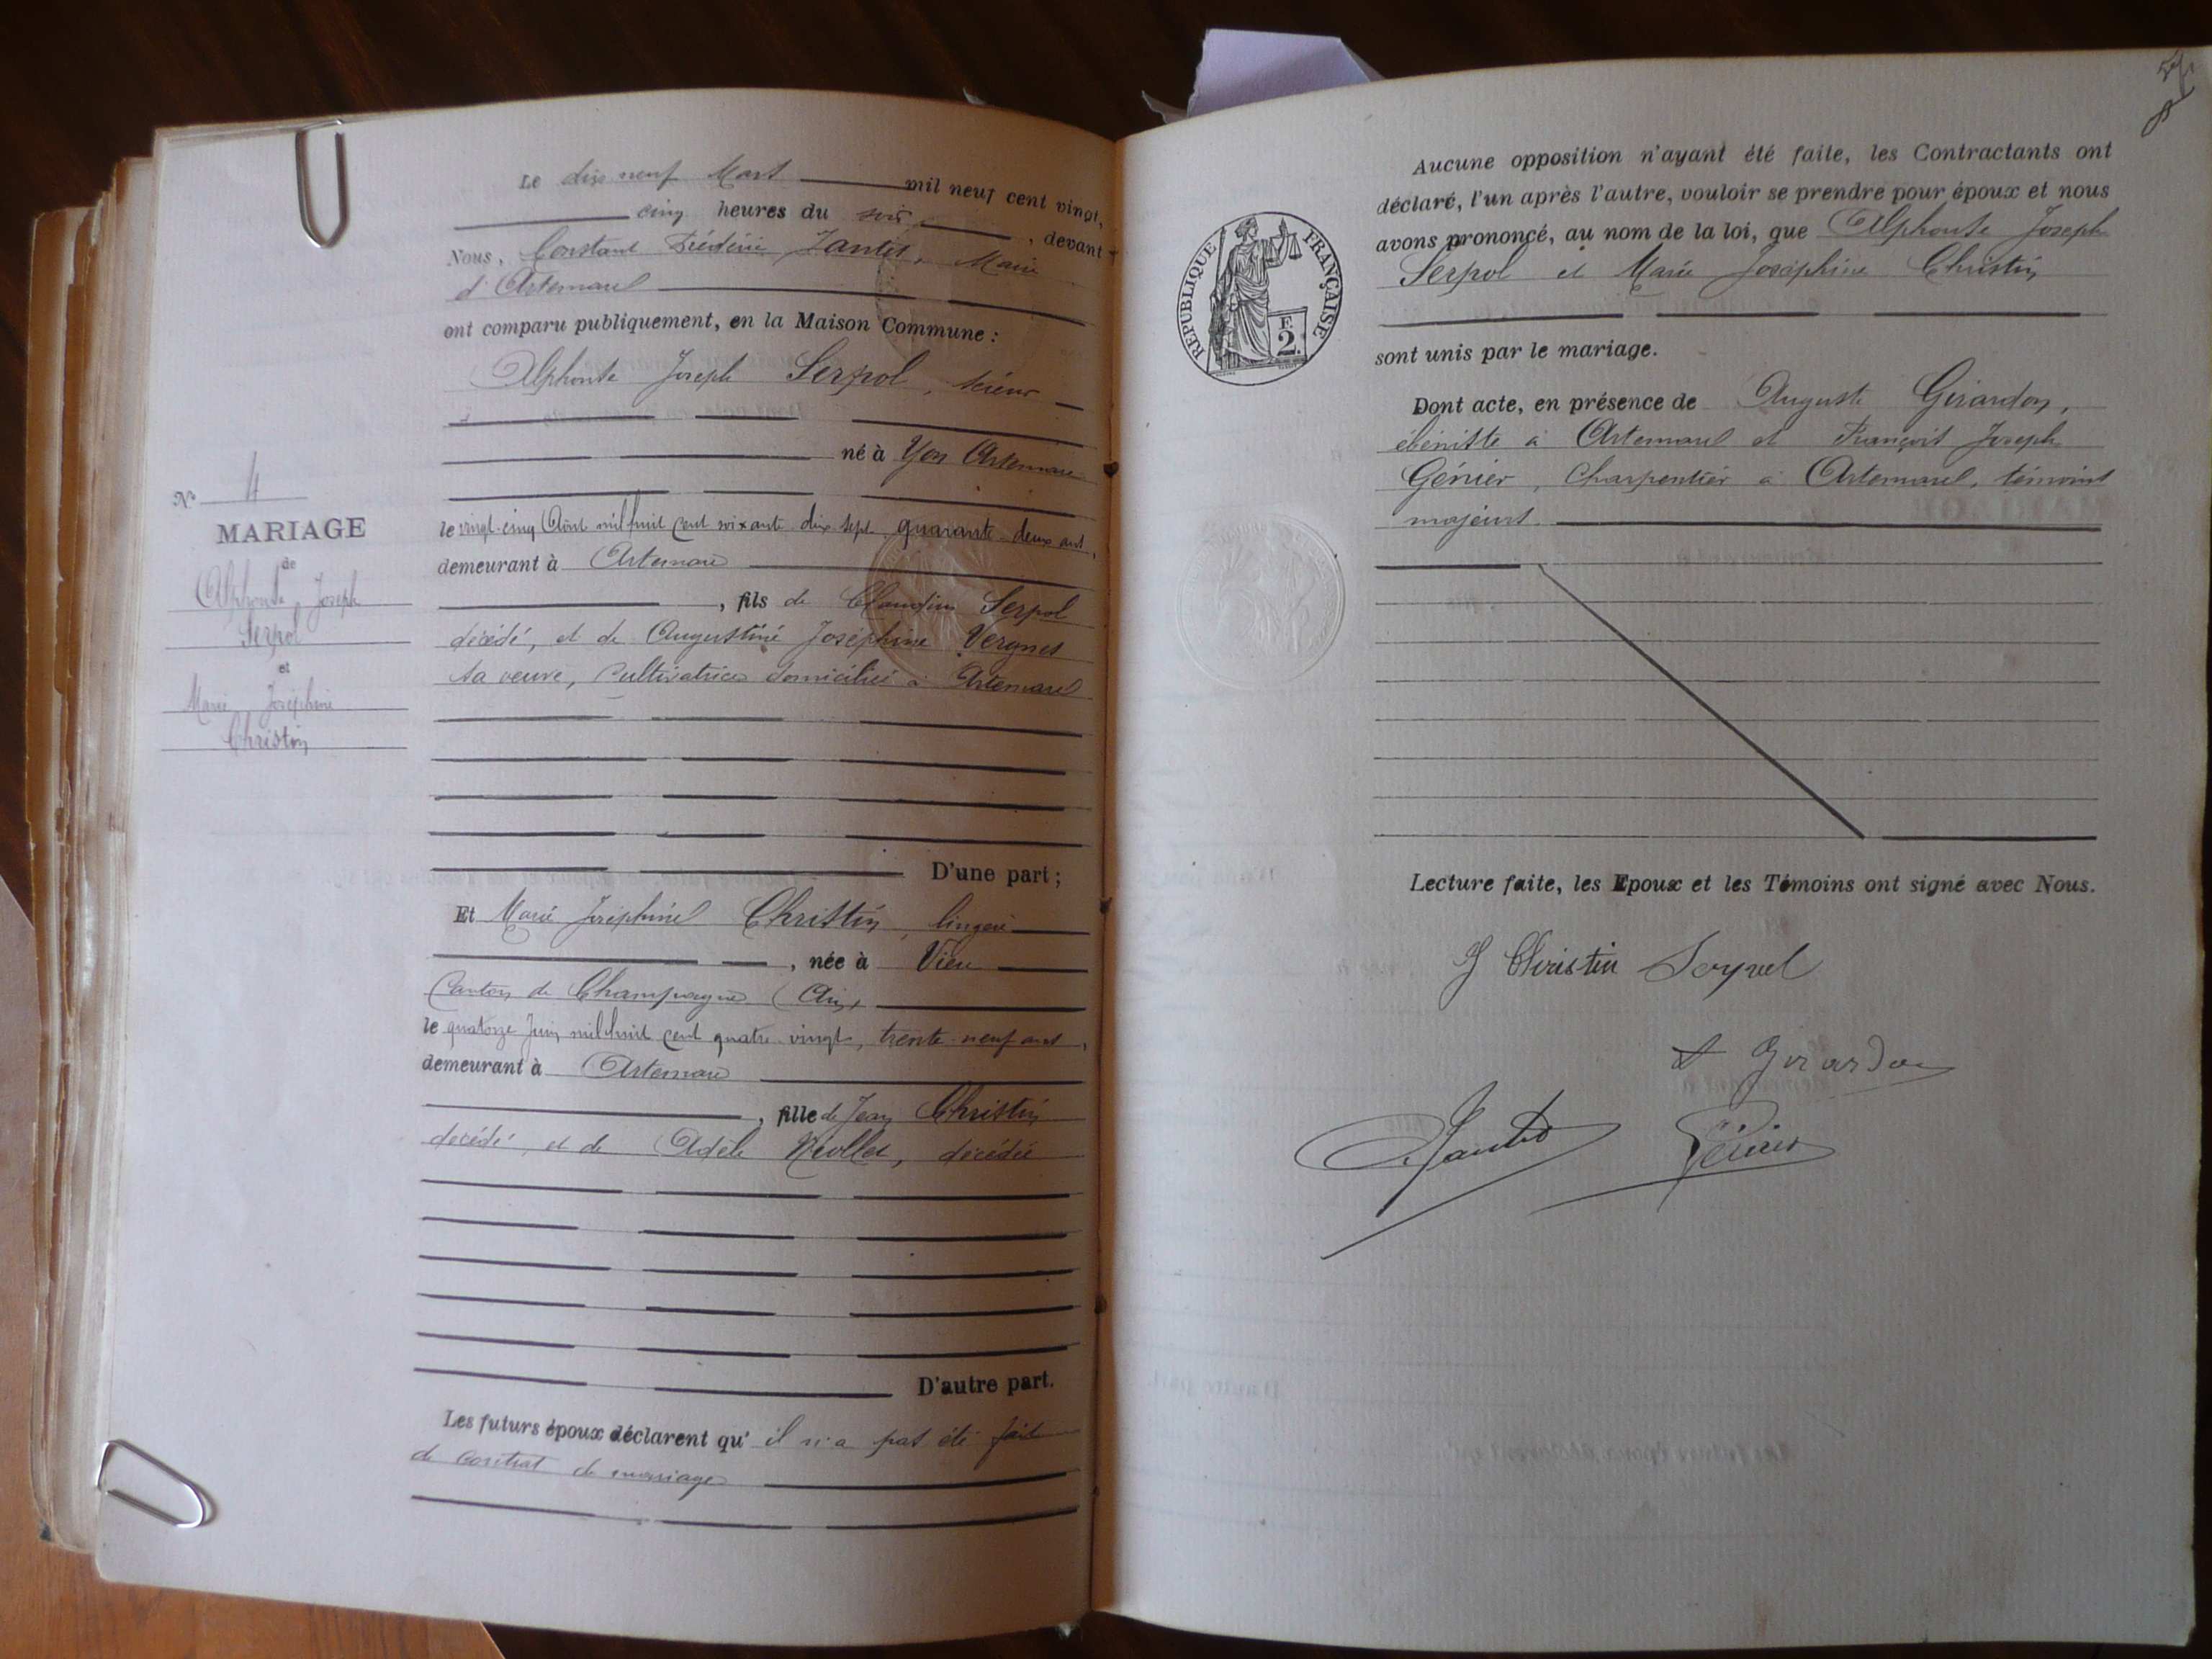 Le dix neuf Mars mil neuf cent vingt,
cinq heures du soir, devant
Nous, Constant Frédéric Jantet, Maire
d'Artemare
ont comparu publiquement, en la Maison Commune :
Alphonse Joseph Serpol, scieur
né à Yon Artemare
le vingt-cinq Août mil huit cent soixante dix sept, quarante-deux ans,
demeurant à Artemare
, fils de Claudius Serpol
décédé, et de Augustine Joséphine Vergnes
sa veuve, Cultivatrice domiciliée à Artemare
N° 4
MARIAGE
de
Alphonse Joseph
Serpol
et
Marie Joséphine
Christin
D'une part ;
Et Marie Joséphine Christin, lingère
, née à Vieu
Canton de Champagne (Ain)
le quatorze Juin mil huit cent quatre-vingts, trente-neuf ans,
demeurant à Artemare
, fille de Jean Christin
décédé, et de Adèle, décédée
D'autre part.
Les futurs époux déclarent qu'il n'a pas été fait
de contrat de mariage
Aucune opposition n'ayant été faite, les Contractants ont
déclaré, l'un après l'autre, vouloir se prendre pour époux et nous
avons prononcé, au nom de la loi, que Alphonse Joseph
Serpol et Marie Joséphine Christin
sont unis par le mariage.
Dont acte, en présence de Auguste Girardon,
ébéniste à Artemare et François Joseph
Génier, Charpentier à Artemare, témoins
majeurs.
REPUBLIQUE FRANÇAISE
2 F.
Lecture faite, les Epoux et les Témoins ont signé avec Nous.
J Christin Serpol
A Girardon
Jantet Génier